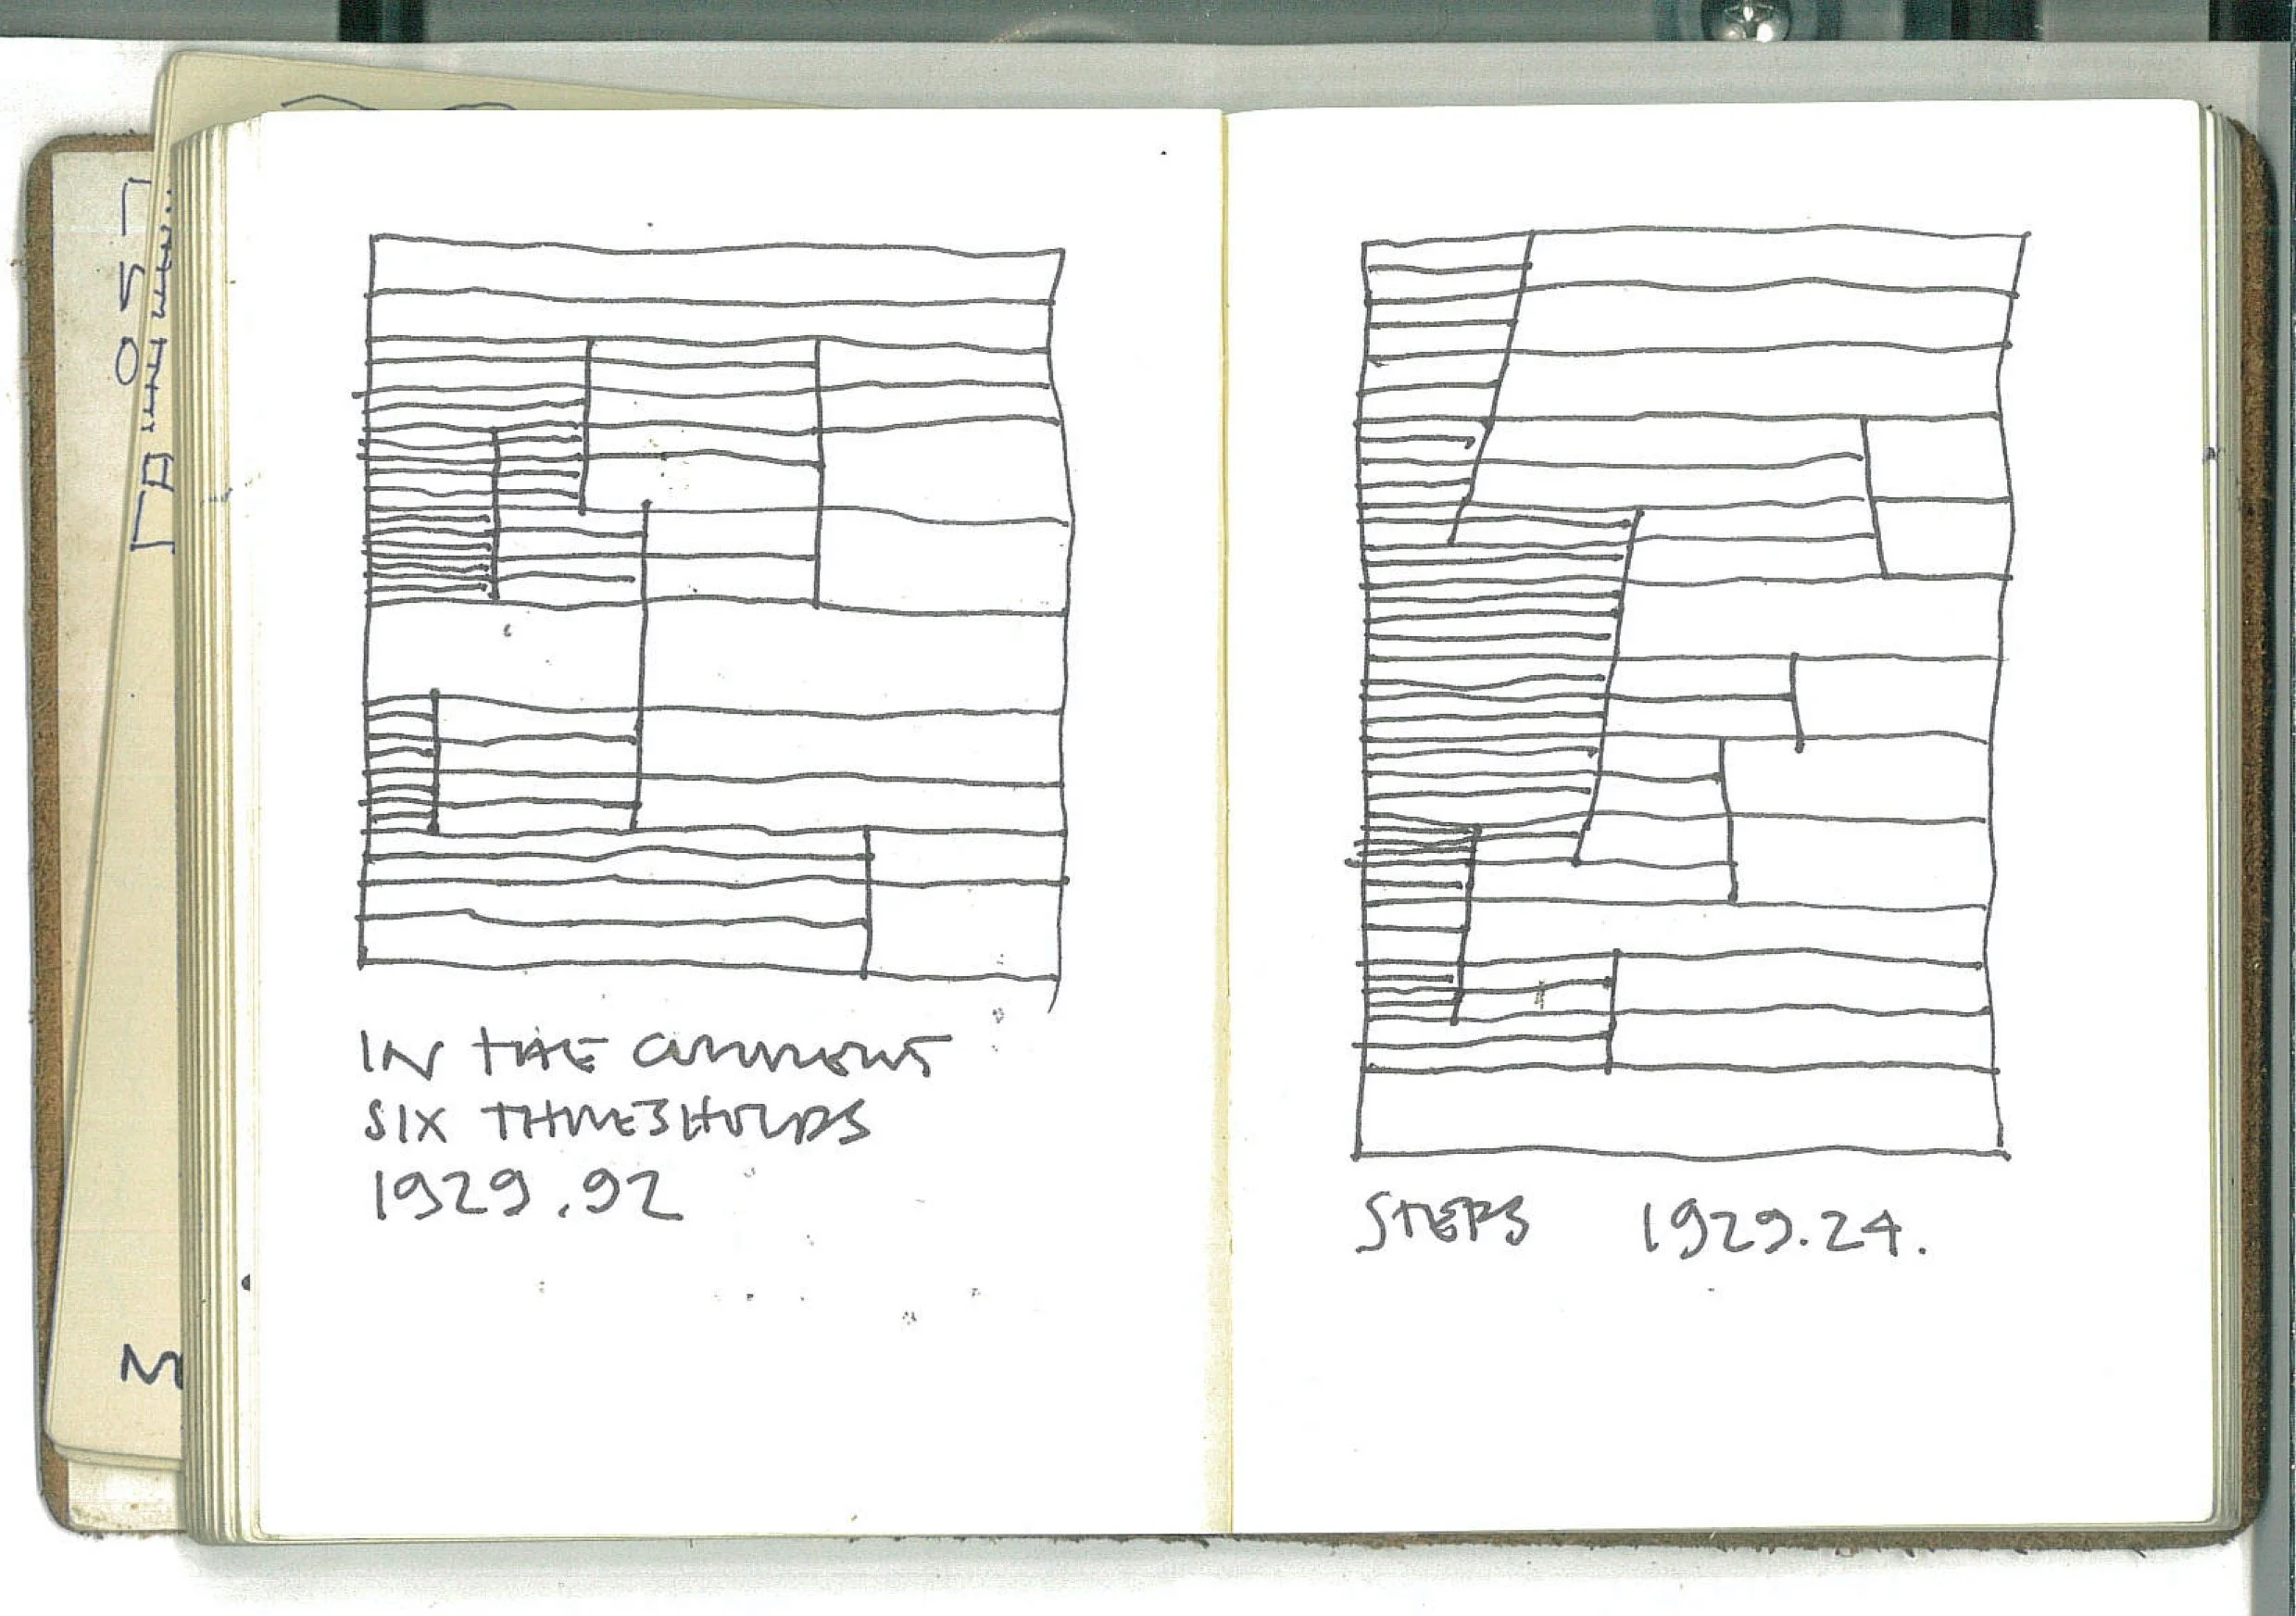 IN THE CURRENT
SIX THRESHOLDS
1929.92
STEPS 1929.24.